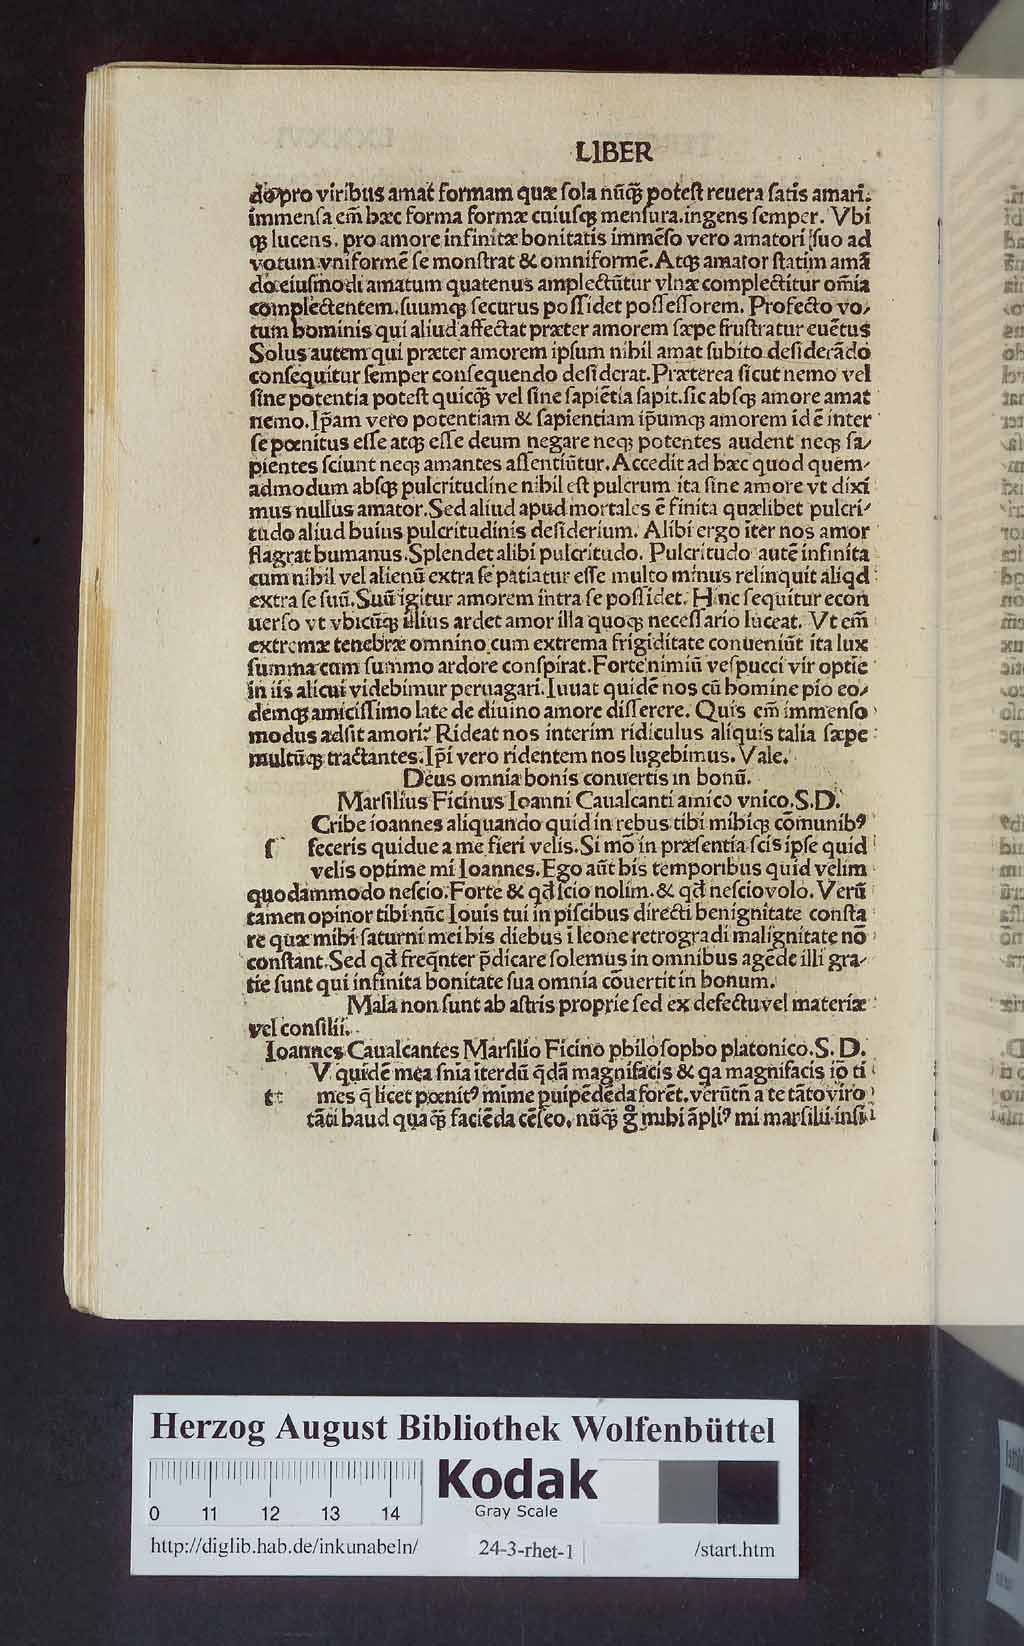 LIBER
do pro viribus amat formam quæ sola nūꝗ̃ potest reuera satis amari.
immensa em̄ hæc forma formæ cuiusqꝫ mensura.ingens semper. Vbi
qꝫ lucens. pro amore infinitæ bonitatis immēso vero amatori suo ad
votum vniformē se monstrat & omniformē.Atqꝫ amator statim amā
do eiusmodi amatum quatenus amplectūtur vlnæ complectitur om̄ia
complectentem.suumqꝫ securus possidet possessorem. Profecto vo/
tum hominis qui aliud affectat præter amorem sæpe frustratur euētus
Solus autem qui præter amorem ipsum nihil amat subito desiderādo
consequitur semper consequendo desiderat.Præterea sicut nemo vel
sine potentia potest quicꝗ̃ vel sine sapiētia sapit.sic absqꝫ amore amat
nemo.Ip̄am vero potentiam & sapientiam ip̄umqꝫ amorem idē inter
se pœnitus esse atqꝫ esse deum negare neqꝫ potentes audent neqꝫ sa/
pientes sciunt neqꝫ amantes assentiūtur.Accedit ad hæc quod quem/
admodum absqꝫ pulcritudine nihil est pulcrum ita sine amore vt dixi
mus nullus amator.Sed aliud apud mortales ē finita quælibet pulcri/
tudo aliud huius pulcritudinis desiderium. Alibi ergo īter nos amor
flagrat humanus.Splendet alibi pulcritudo. Pulcritudo autē infinita
cum nihil vel alienū extra se patiatur esse multo minus relinquit aliqd
extra se suū.Suū igitur amorem intra se possidet. Hinc sequitur econ
uerso vt vbicūqꝫ illius ardet amor illa quoqꝫ necessario luceat. Vt em̄
extremæ tenebræ omnino cum extrema frigiditate conueniūt ita lux
summa cum summo ardore conspirat.Forte nimiū vespucci vir optie
in iis alicui videbimur peruagari.Iuuat quidē nos cū homine pio eo/
demqꝫ amicissimo late de diuino amore disserere. Quis em̄ immenso
modus adsit amori? Rideat nos interim ridiculus aliquis talia sæpe
multūqꝫ tractantes.Ip̄i vero ridentem nos lugebimus. Vale.
Deus omnia bonis conuertis in bonū.
Marsilius Ficinus Ioanni Caualcanti amico vnico.S.D.
Cribe ioannes aliquando quid in rebus tibi mihiqꝫ cōmunibꝰ
s feceris quidue a me fieri velis.Si mō in præsentia scis ipse quid
velis optime mi Ioannes.Ego aūt his temporibus quid velim
quodammodo nescio.Forte & qd̄ scio nolim.& qd̄ nescio volo. Verū
tamen opinor tibi nūc Iouis tui in piscibus directi benignitate consta
re quæ mihi saturni mei his diebus ī leone retrogradi malignitate nō
constant.Sed qd̄ freqn̄ter p̄dicare solemus in omnibus agēde illi gra/
tie sunt qui infinita bonitate sua omnia cōuertit in bonum.
Mala non sunt ab astris proprie sed ex defectu vel materiæ
vel consilii.
Ioannes Caualcantes Marsilio Ficino philosopho platonico.S. D.
V quidē mea sn̄ia īterdū q̄dā magnifacis & qa magnifacis iō ti
t mes q̄ licet pœnitꝰ mīme ꝑuipēdēda forēt.verūtn̄ a te tāto viro
tāti haud quaꝗ̃ faciēda cēseo. nūꝗ̃ g̊ mihi āpliꝰ mi marsilii insi
Herzog August Bibliothek Wolfenbüttel
0 11 12 13 14
Kodak
Gray Scale
http://diglib.hab.de/inkunabeln/ 24-3-rhet-1 /start.htm